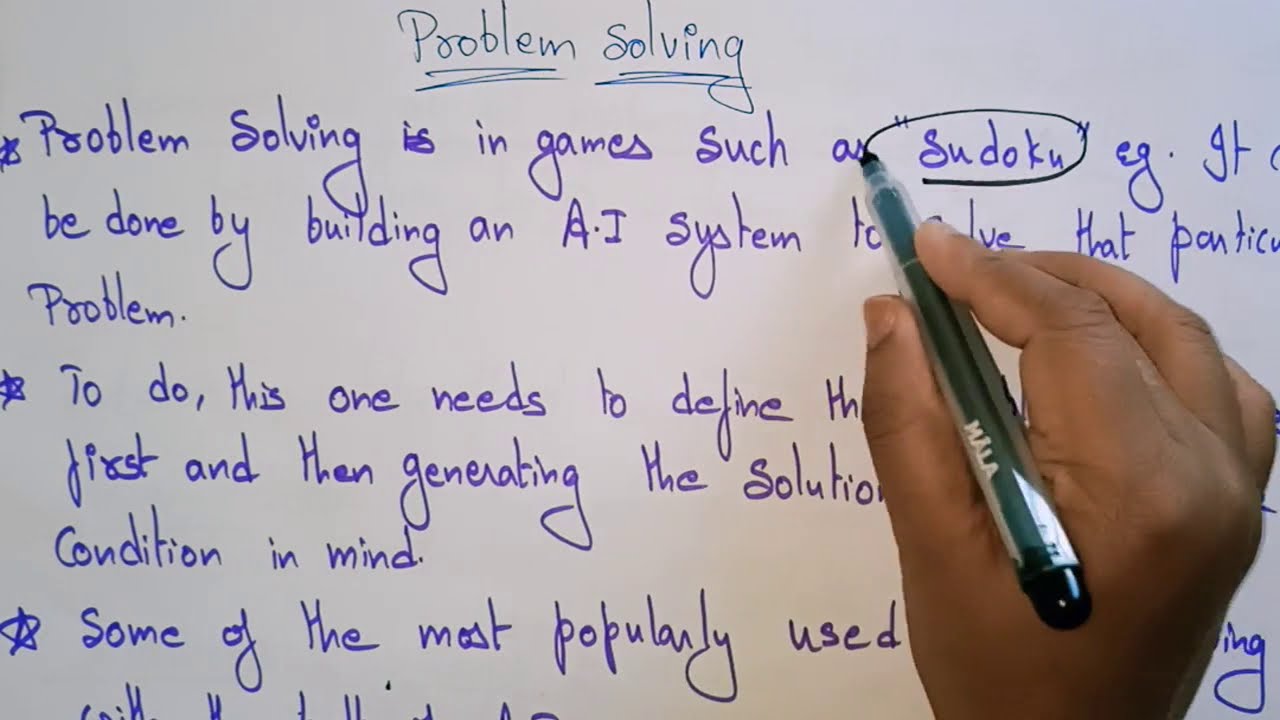 Problem Solving
Problem Solving is in games such as "Sudoku" eg. It
be done by building an A.I system to that
Problem.
To do, this one needs to define
first and then generating the
Condition in mind.
Some of the most popularly used
MALA